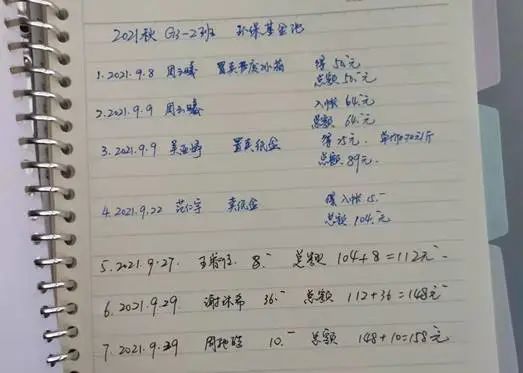 2021秋 G3-2班 环保基金池
1. 2021.9.8 周 置卖 冰箱 得 50元
总额 50元
2. 2021.9.9 周 入账 64元
总额 64元
3. 2021.9.9 吴亚婷 置卖纸盒 得 25元
总额 89元
4. 2021.9.22 范仁宇 卖纸盒 得入账 15.-
总额 104元
5. 2021.9.27. 王 8.- 总额 104+8=112元
6. 2021.9.29 谢沐希 36.- 总额 112+36=148元
7. 2021.9.29 周 10.- 总额 148+10=158元